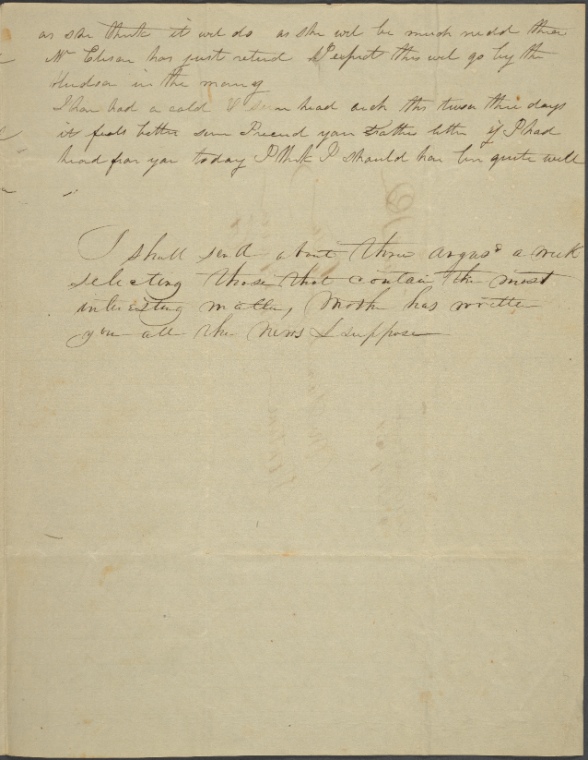 as she think it wil do as she wil be much nedd there
Mr Elison has just returd I expect this wil go by the
Hudson in the morng
I hav had a cold & seven head ach this two or thre days
it feels better sinn I receivd your Father letter if I had
heard from you today I think I should hav ben quite well
I shall send about three argus's a week
selecting those that contain the most
interesting matter, Mother has written
you all the news I suppose